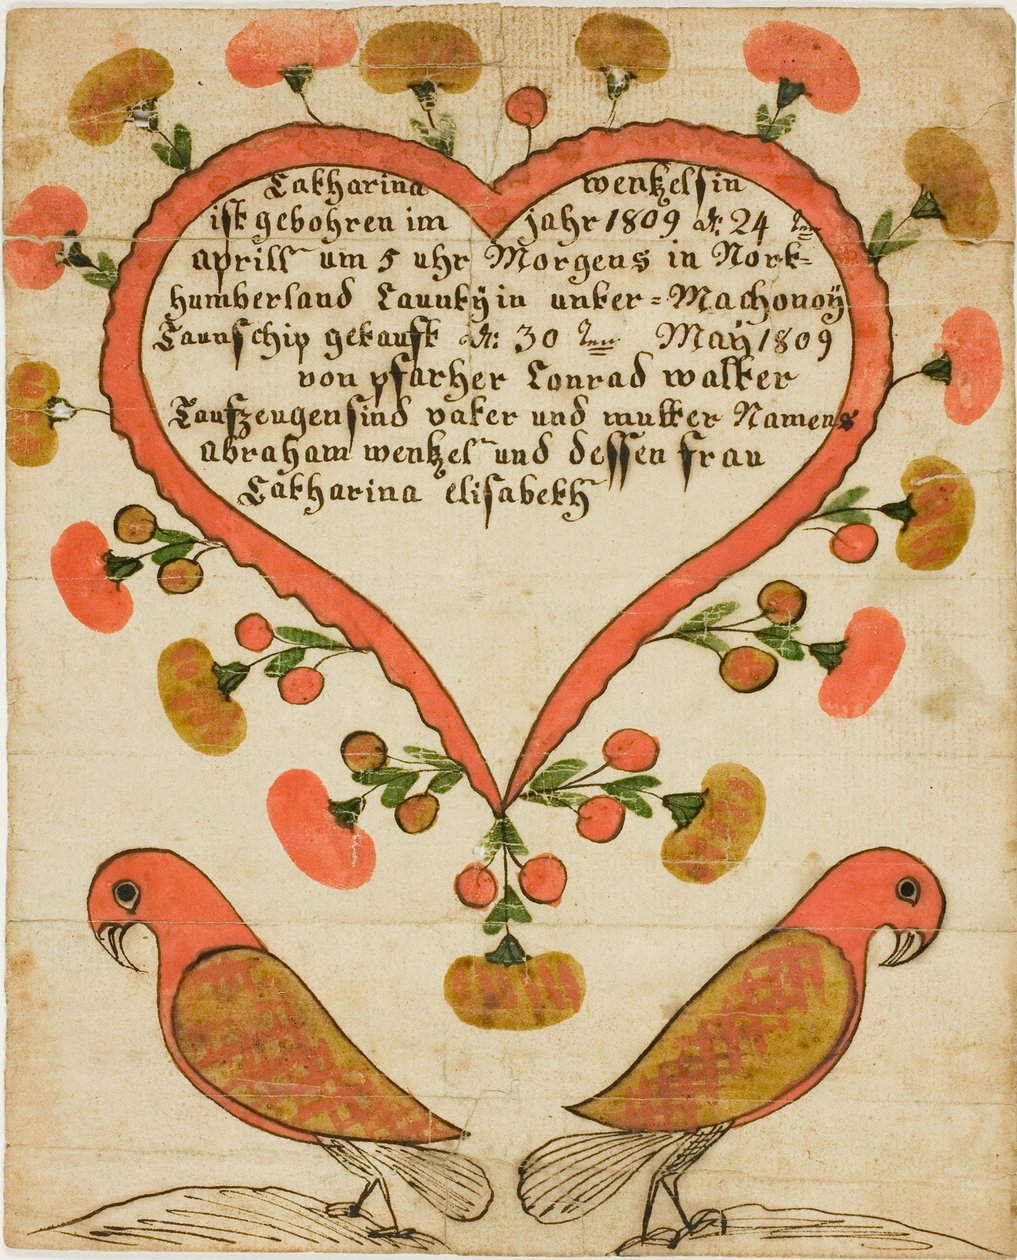 Catharina wentzelsin
ist gebohren im jahr 1809 d: 24 ten
aprill um 5 uhr Morgens in Nort-
humberland Cauntÿ in unter=Machonoÿ
Taunschip getauft d: 30 ten Maÿ 1809
von pfarher Conrad walter
Taufzeugen sind vater und mutter Namens
abraham wentzel und dessen frau
Catharina elisabeth